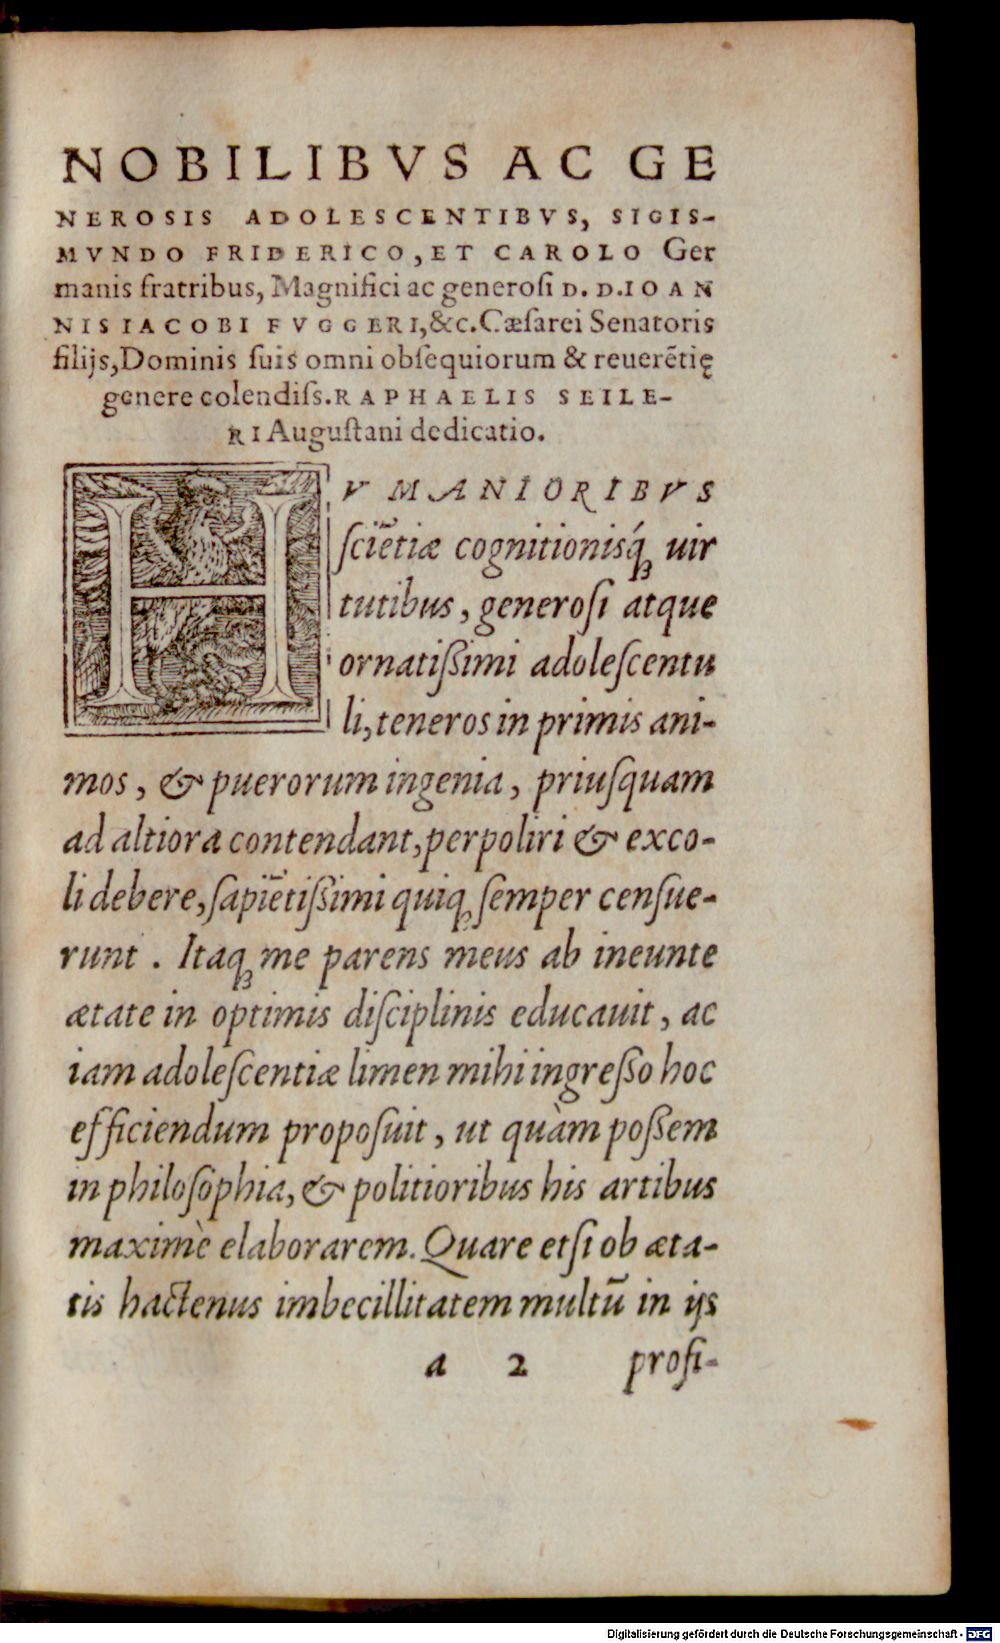 NOBILIBVS AC GE
NEROSIS ADOLESCENTIBVS, SIGIS-
MVNDO FRIDERICO, ET CAROLO Ger
manis fratribus, Magnifici ac generoſi D. D. IOAN
NIS IACOBI FVGGERI, &c. Cæſarei Senatoris
filijs, Dominis ſuis omni obſequiorum & reuerẽtię
genere colendiſs. RAPHAELIS SEILE-
RI Auguſtani dedicatio.
HVMANIORIBVS
ſciẽtiæ cognitionisq́ꝫ uir
tutibus, generoſi atque
ornatiſsimi adoleſcentu
li, teneros in primis ani-
mos, & puerorum ingenia, priuſquam
ad altiora contendant, perpoliri & exco-
li debere, ſapiẽtiſsimi quiqꝫ ſemper cenſue-
runt. Itaqꝫ me parens meus ab ineunte
ætate in optimis diſciplinis educauit, ac
iam adoleſcentiæ limen mihi ingreſso hoc
efficiendum propoſuit, ut quàm poſsem
in philoſophia, & politioribus his artibus
maximè elaborarem. Quare etſi ob æta-
tis hactenus imbecillitatem multũ in ijs
a 2 profi-
Digitalisierung gefördert durch die Deutsche Forschungsgemeinschaft - DFG